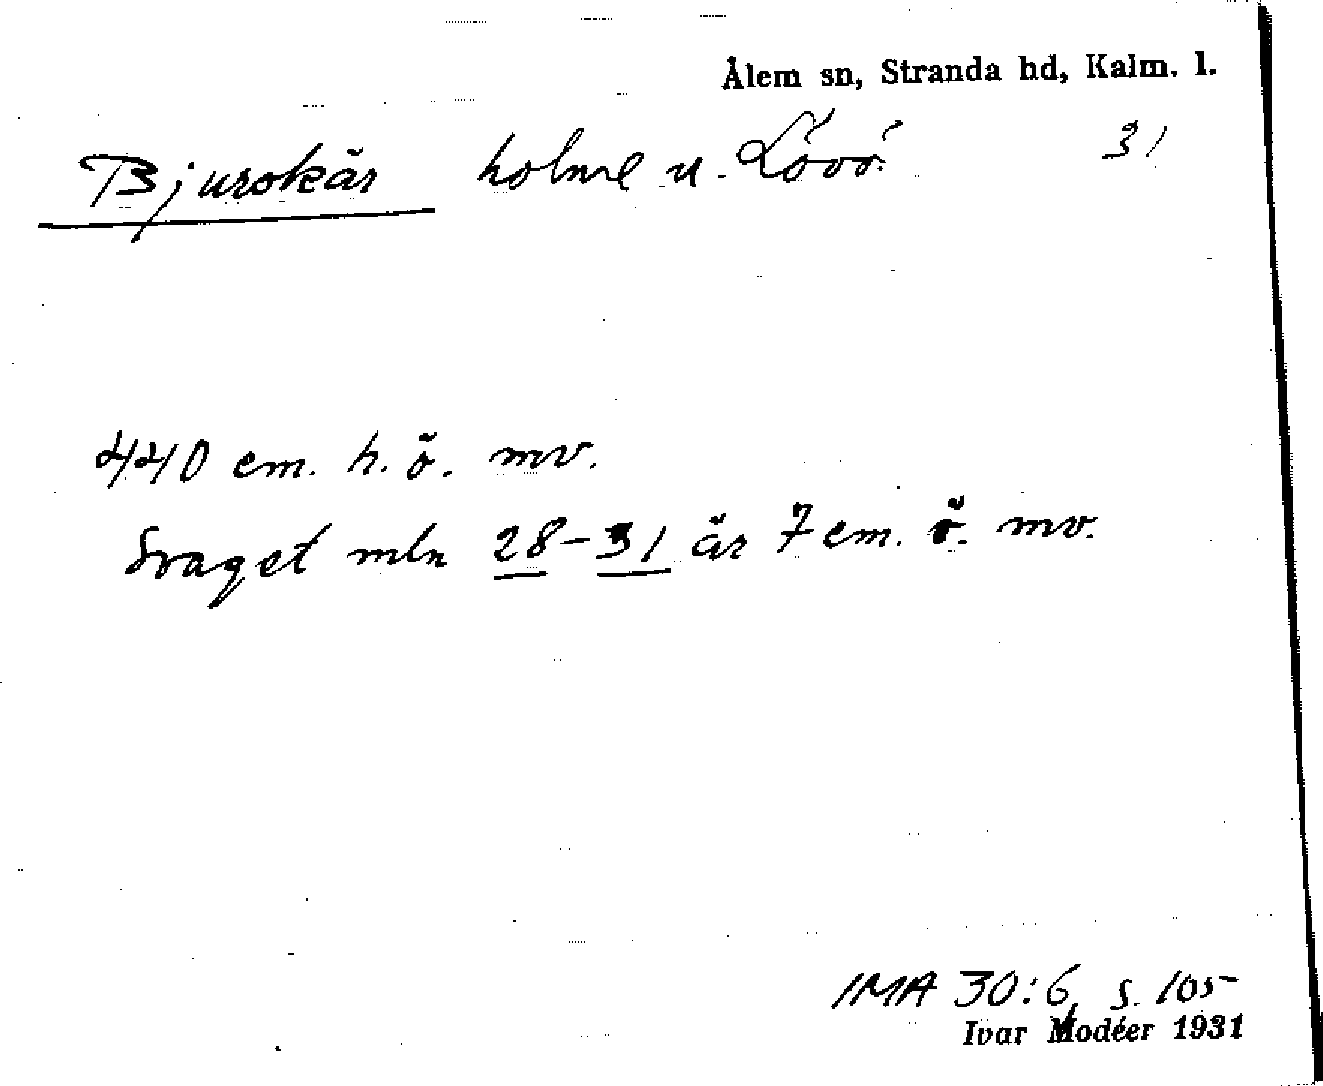 Ålem sn, Stranda hd, Kalm. l.
Bjurskär holme u. Lövö. 31
440 cm. h. ö. mv.
Svaget mln 28-31 är 7 cm. ö. mv.
IMA 30:6 s. 105
Ivar Modéer 1931